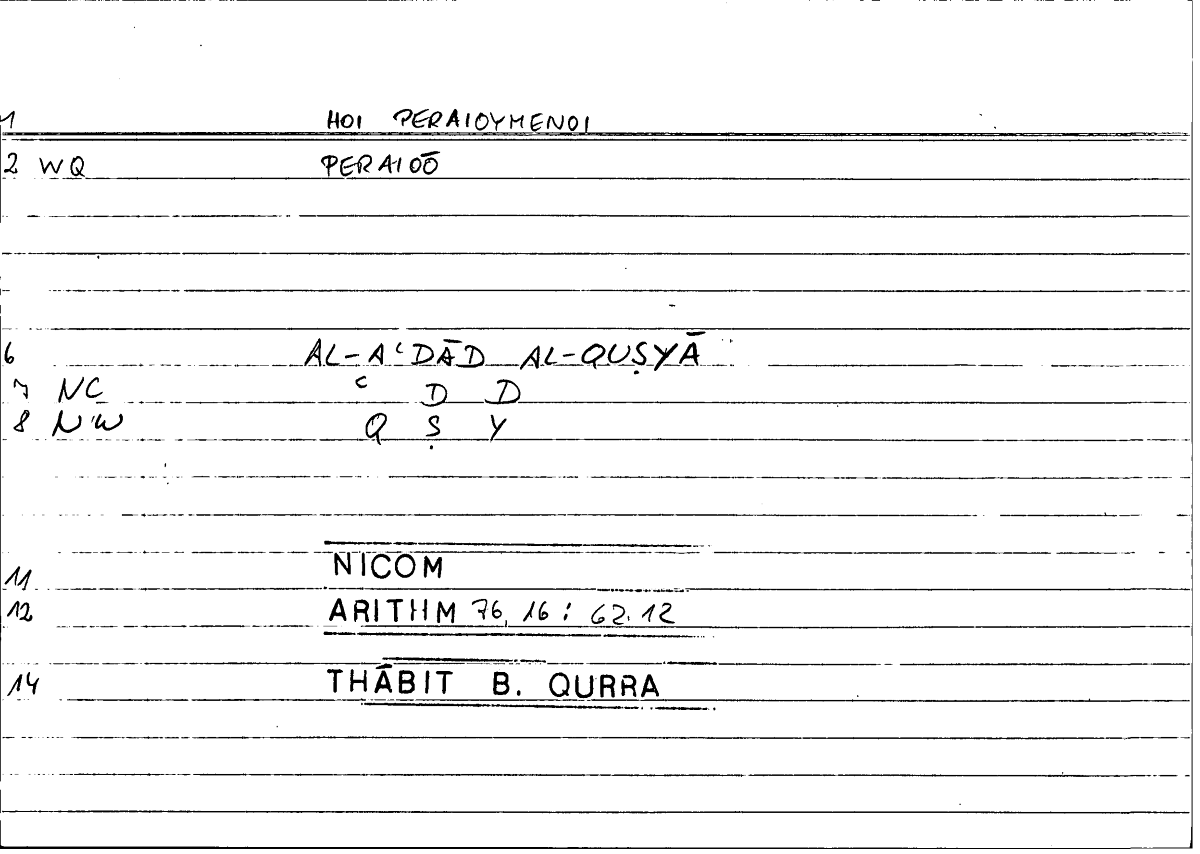 1 HOI PERAIOYMENOI
2 WQ PERAIOŌ
6 AL-AʿDĀD AL-QUṢYĀ
7 NC ʿ D D
8 NW Q Ṣ Y
11 NICOM
12 ARITHM 76, 16 : 62.12
14 THĀBIT B. QURRA